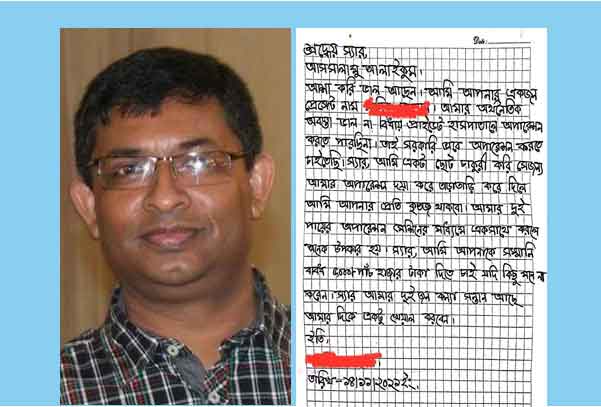 Date:
শ্রদ্ধেয় স্যার,
আসসালামু-আলাইকুম।
আশা করি ভাল আছেন। আমি আপনার একজন
প্রেসেন্ট নাম । আমার অর্থনৈতিক
অবস্থা ভাল না বিধায় প্রাইভেট হাসপাতালে অপারেশন
করতে পারছিনা। তাই সরকারি ভাবে অপারেশন করতে
চাইতেছি। স্যার, আমি একটা ছোট চাকুরী করি সেজন্য
আমার অপারেশন দয়া করে তাড়াতাড়ি করে দিলে
আমি আপনার প্রতি কৃতজ্ঞ থাকবো। আমার দুই
পায়ের অপারেশন মেশিনের মাধ্যমে একসাথে করলে
অনেক উপকার হয়। স্যার, আমি আপনাকে সম্মানি
বাবদ ৫০০০/ পাঁচ হাজার টাকা দিতে চাই যদি কিছু মনে না
করেন। স্যার আমার দুইজন কন্যা সন্তান আছে
আমার দিকে একটু খেয়াল করবেন।
ইতি
তারিখ-১৪/১১/২০২১ইং